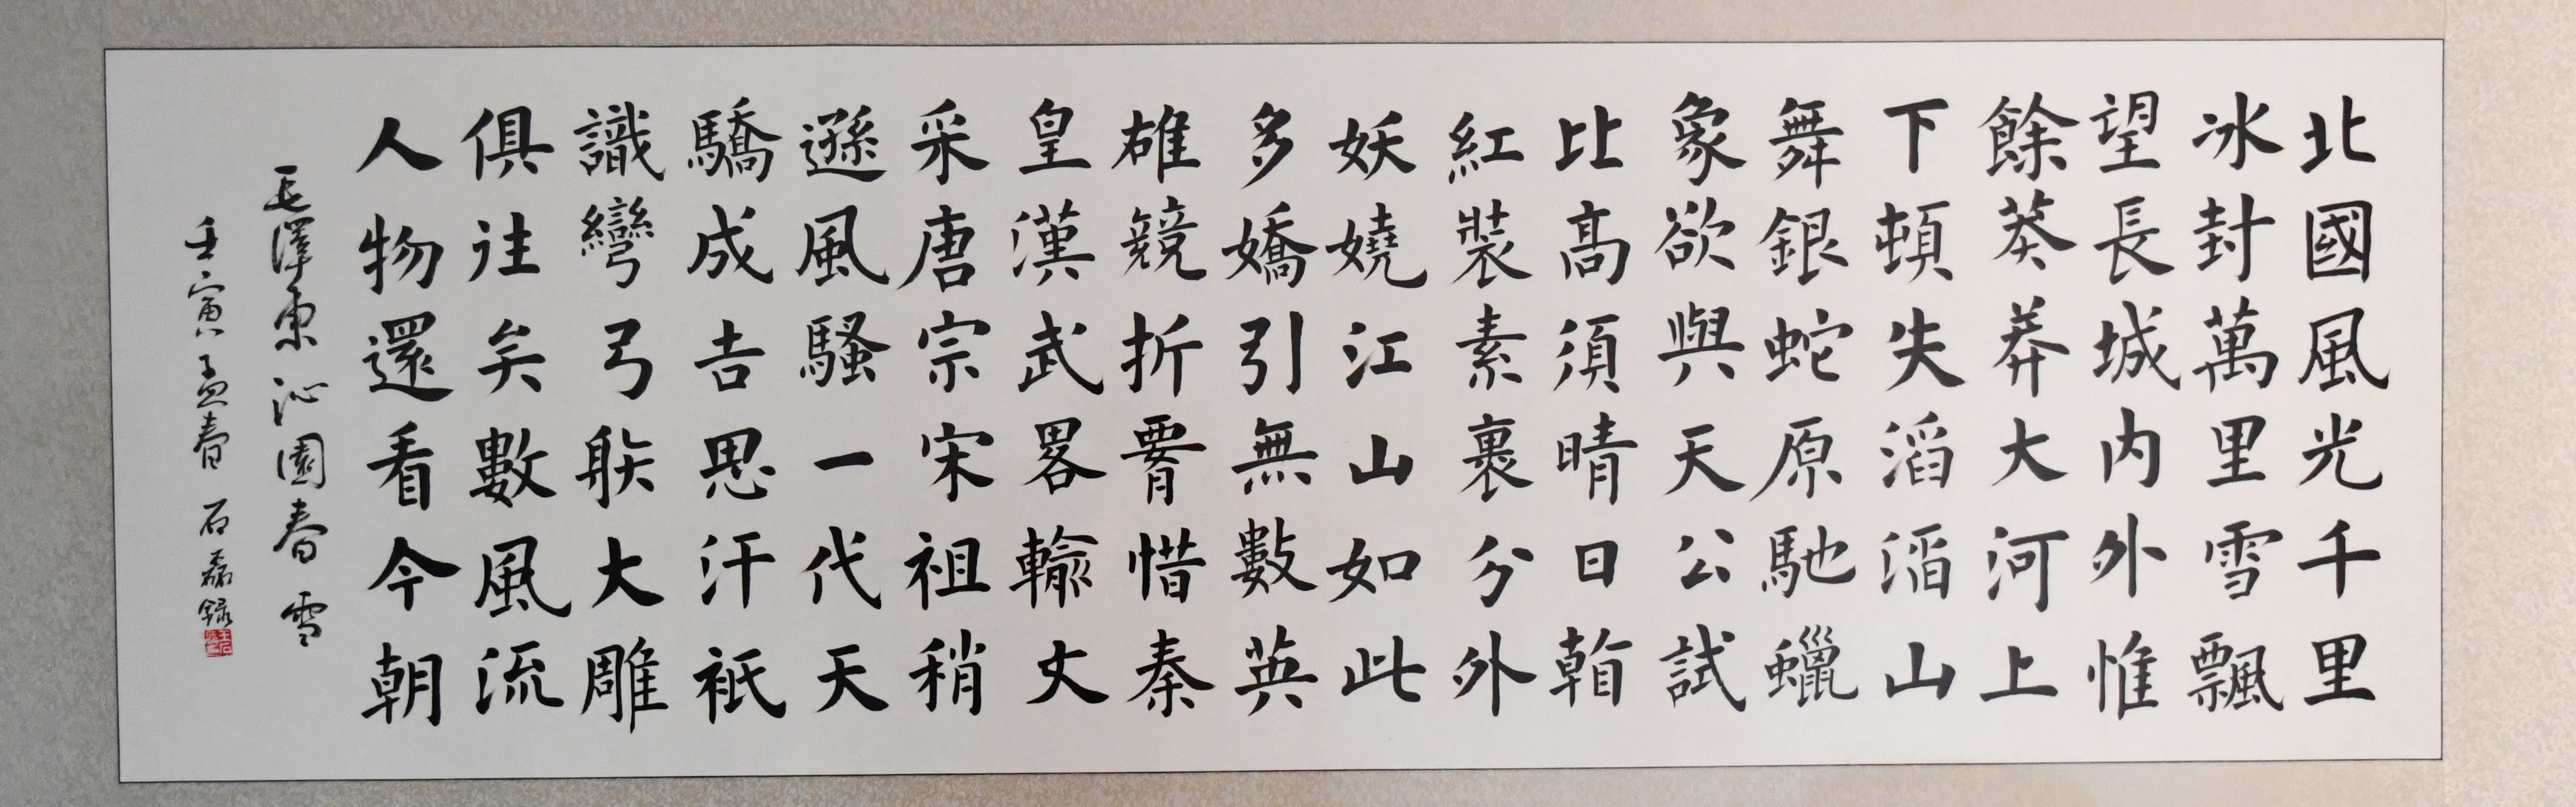 北國風光千里
冰封萬里雪飄
望長城内外惟
餘莽莽大河上
下頓失滔滔山
舞銀蛇原馳蠟
象欲與天公試
比高須晴日看
紅裝素裹分外
妖嬈江山如此
多嬌引無數英
雄競折腰惜秦
皇漢武畧輸文
采唐宗宋祖稍
遜風騷一代天
驕成吉思汗祇
識彎弓射大雕
俱往矣數風流
人物還看今朝
毛澤東沁園春雪
壬寅孟春 石磊錄